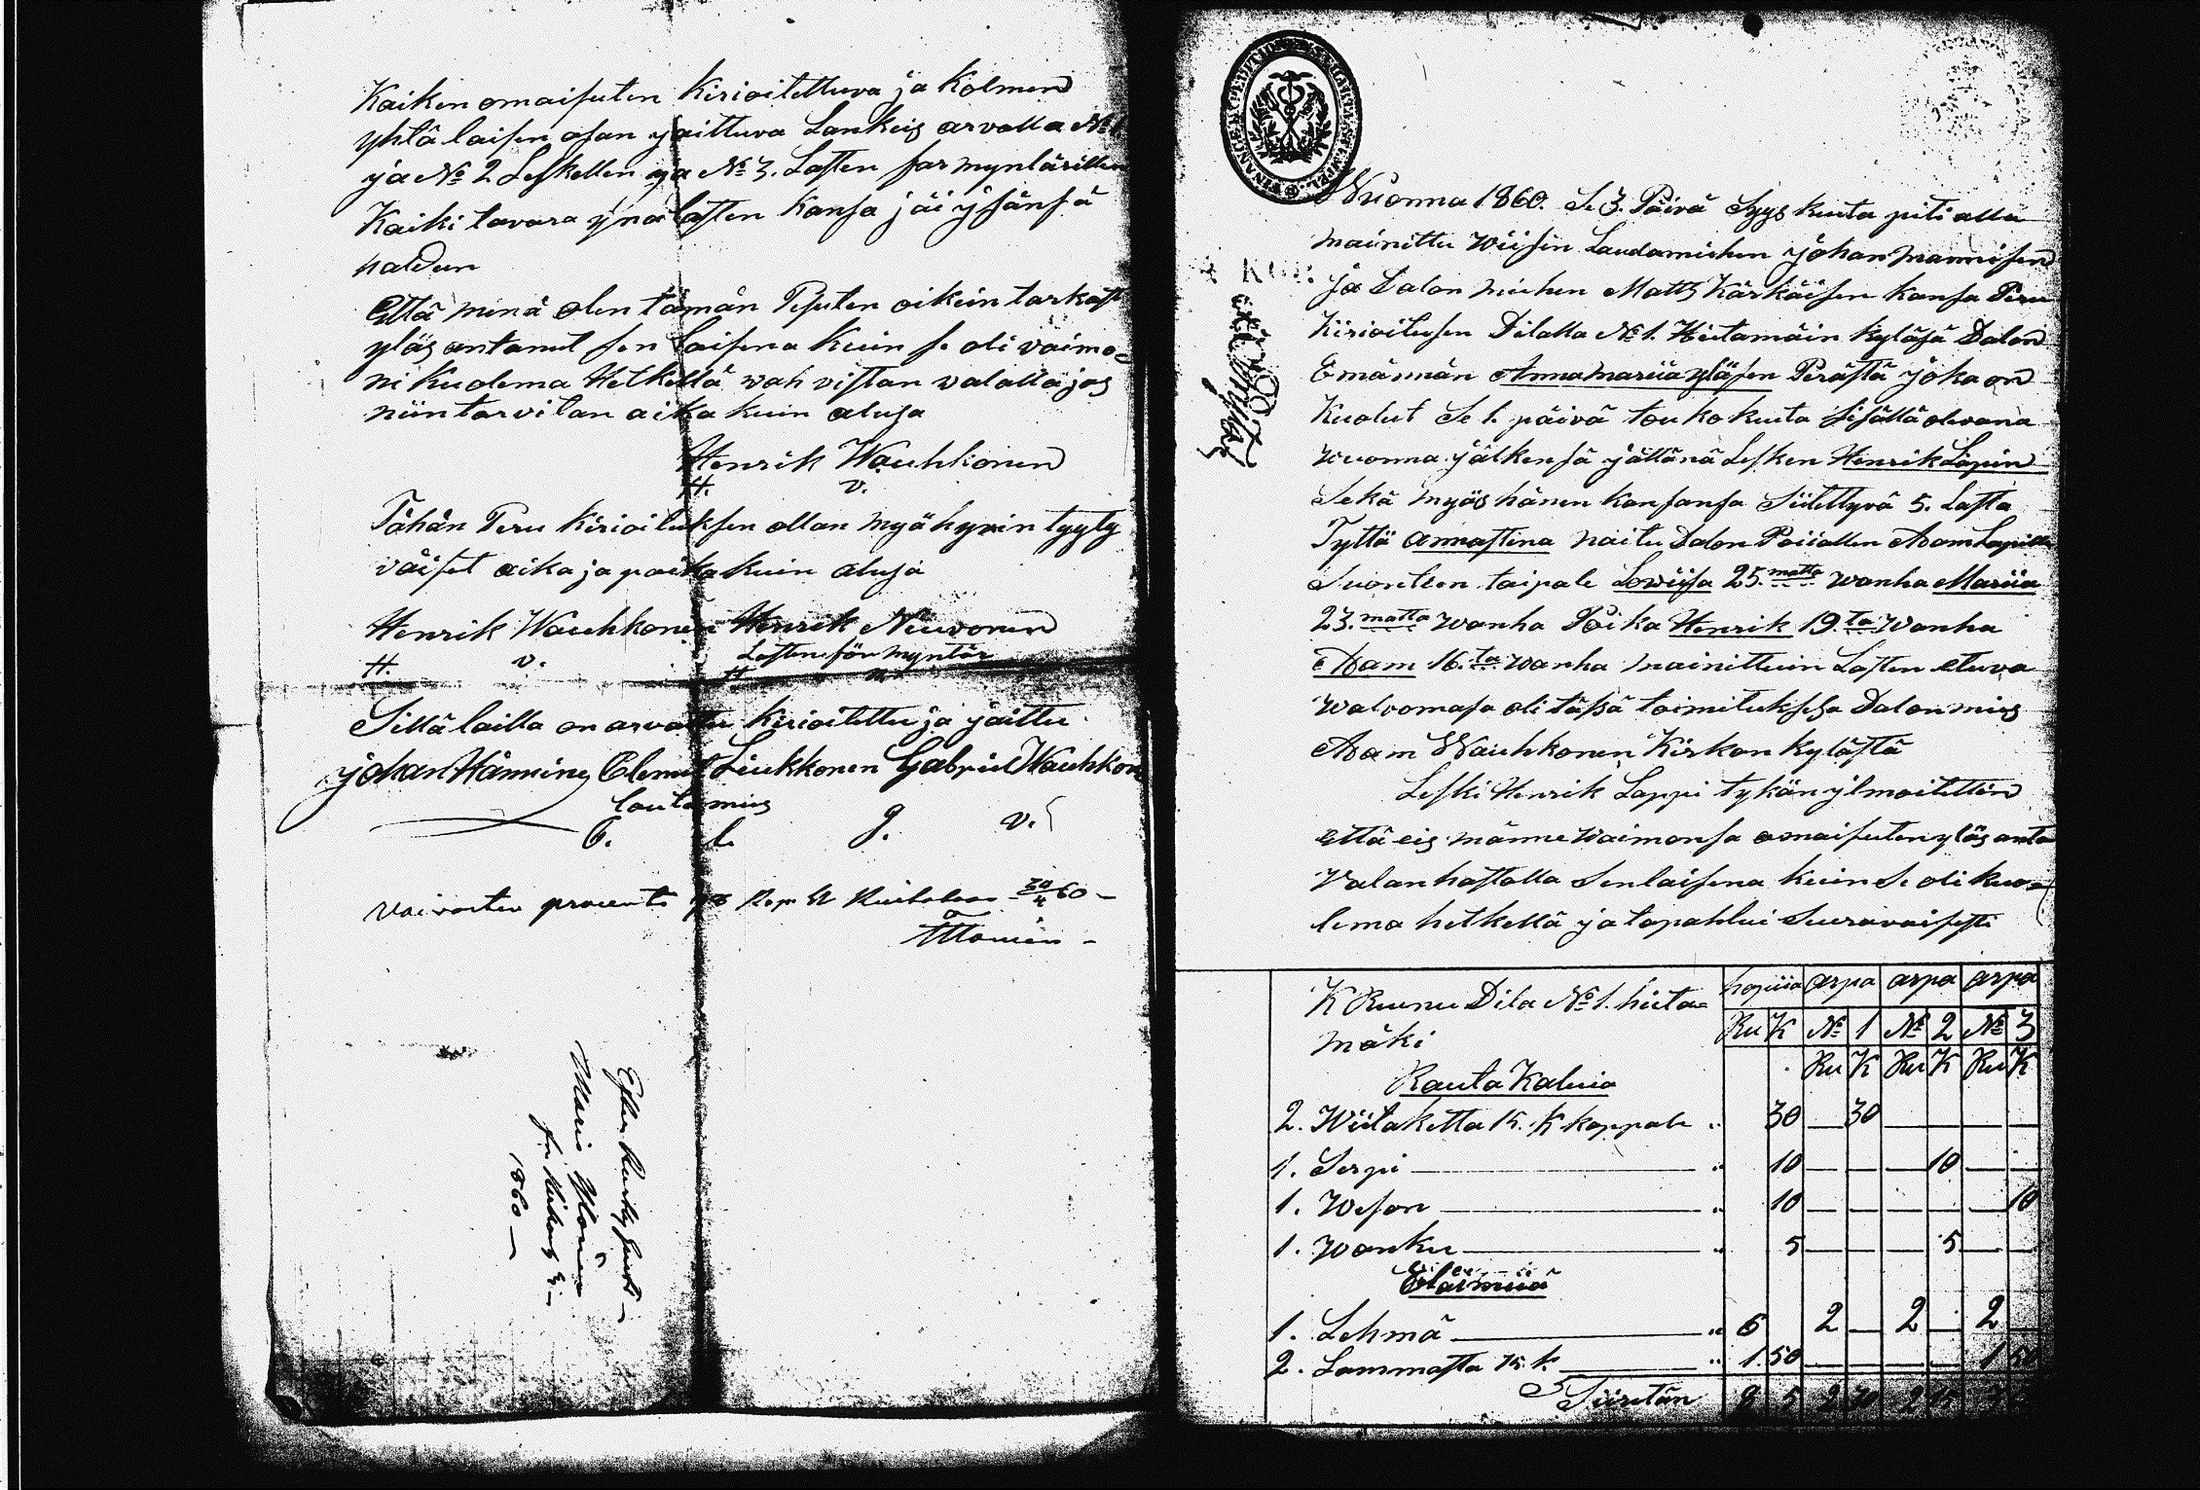 Kaiken omaisuten Kirioitettuva ja Kolmen
yhtä laisen osan jaittuva Lankeis arvalla No 1
ja No 2 Leskellen ja No 3. Lasten farmyntärillen
Kaiki tavara yna lasten Kansa jäi ysänsä
haldun
Että minä olen tämän Pesuten oikein tarkast
yläs antanut sen laisena Kuin se oli vaimo-
ni Kuolema Hetkellä, wahvistan valalla jos
niin tarvitan aika kuin aluja
Henrik Wauhkonen
H. v.
Tähän Peru Kirioituksen ollan myä hyvin tyyty
väiset aika ja paika kuin aluja
Henrik Wauhkonen Henrik Neuvonen
Lasten för myntär
H. v. H n.
Sillä lailla on arvattu Kirioitettu ja jaittu
Johan Hänninen Clemet Liukkonen Gabriel Wauhkon
lautamies
C. l. g. v.
Vaivasten procents
1860
Wuonna 1860. Se 3. Päivä Syys kuuta piti alla
mainittu wiisin Laudamiehen Johan Mannisen
Ja Dalon miehen Matts Kärkäisen kansa Peru
Kirioituxen Dilalla No 1. Hietamäin kyläsä Dalon
Emännän Anna Mariia yläsen Perästä joka on
Kuolut Se 1. päivä touko kuuta sisällä olevana
wuonna jälkensä jättänä Lesken Henrik Lapin
Sekä myös hänen kansansa Siitettyvä 5. Lasta
Tyttä Annastina naitu Dalon Poiallen Adam Lapille
Suontien taipale Lowiisa 25.matta wanha Mariia
23.matta wanha Poika Henrik 19.ta wanha
Adam 16.ta wanha mainittuin Lasten etuva
walvomasa oli täsä toimituksesa Dalon mies
Adam Wauhkonen Kirkon kylästä
Leski Henrik Lappi tykän ylmoitettin
että eis männe waimonsa omaisuten yläs anta
Valan hastalla Senlaisena kuin Se oli kuo-
lema hetkellä ja tapahtui Seuravaisesti
K Ruunu Dila No 1. hieta- hopiia arpa arpa arpa
mäki Ru K No 1 No 2 No 3
Ru K Ru K Ru K
Rauta Kaluia
2. Wiitaketta 15. K kappale " 30 30
1. Serpi " 10 10
1. Weson " 10 10
1. Wanku " 5 5
Eläimiiä
1. Lehmä " 6 2 2 2
2. Lammasta 75. k. " 1.50 1 50
Siiretän 8 5 2 30 2 15